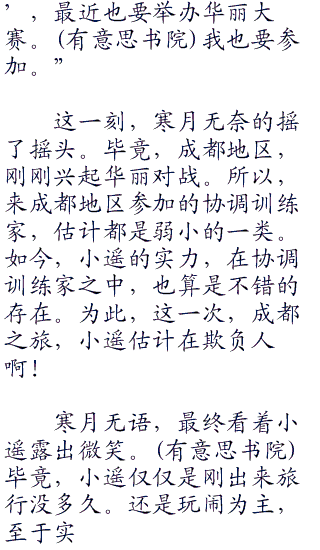 ’，最近也要举办华丽大
赛。(有意思书院)我也要参
加。”
这一刻，寒月无奈的摇
了摇头。毕竟，成都地区，
刚刚兴起华丽对战。所以，
来成都地区参加的协调训练
家，估计都是弱小的一类。
如今，小遥的实力，在协调
训练家之中，也算是不错的
存在。为此，这一次，成都
之旅，小遥估计在欺负人
啊！
寒月无语，最终看着小
遥露出微笑。(有意思书院)
毕竟，小遥仅仅是刚出来旅
行没多久。还是玩闹为主，
至于实